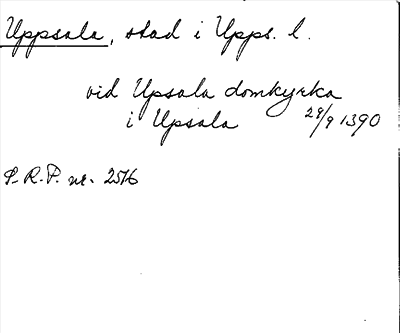 Uppsala, stad i Upps. l.
vid Upsala domkyrka
i Upsala 29/9 1390
S.R.P. nr. 2516